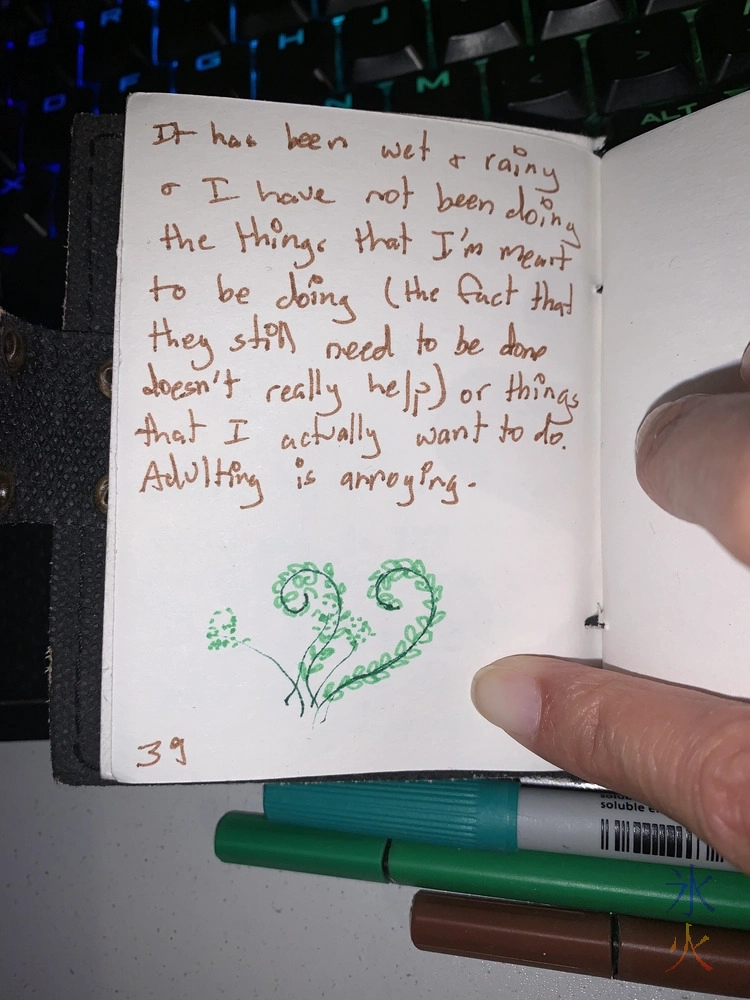 E R T G H J
D F N M < >
ALT
X
It has been wet & rainy
& I have not been doing
the things that I'm meant
to be doing (the fact that
they still need to be done
doesn't really help) or things
that I actually want to do.
Adulting is annoying.
39
soluble
氷
火